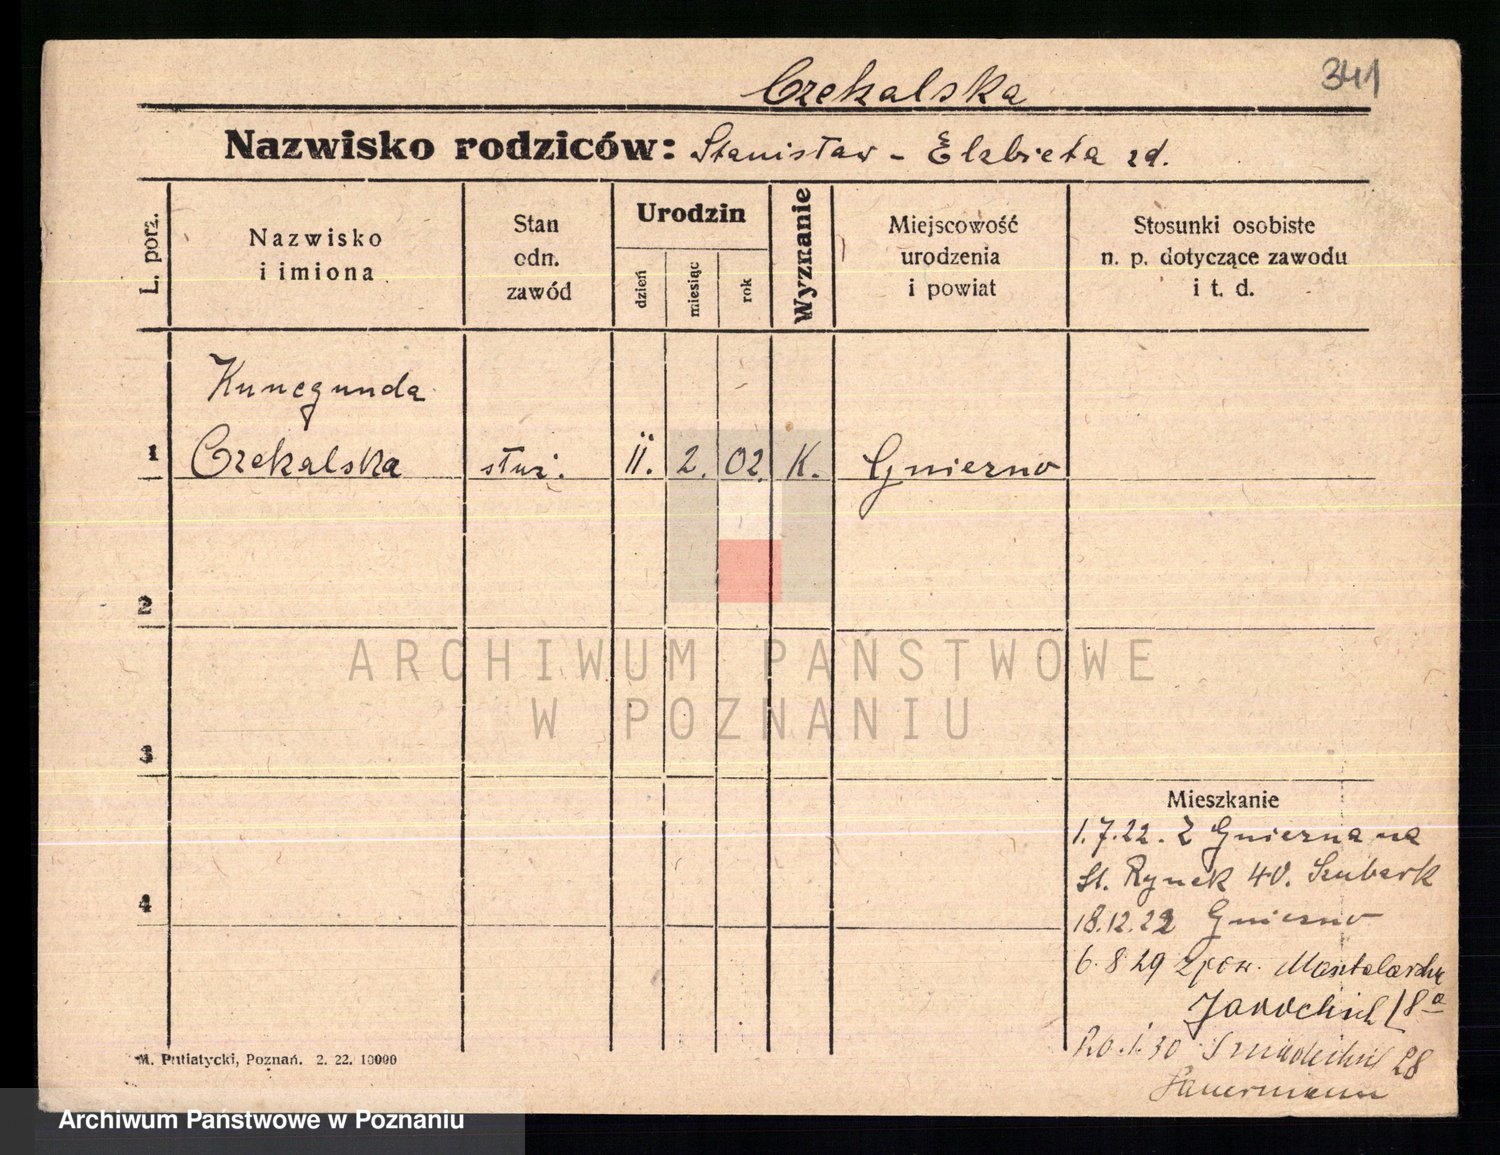 341
Czekalska
Nazwisko rodziców: Stanisław - Elżbieta zd.
L. porz.
Nazwisko
i imiona
Stan
odn.
zawód
Urodzin
dzień
miesiąc
rok
Wyznanie
Miejscowość
urodzenia
i powiat
Stosunki osobiste
n. p. dotyczące zawodu
i t. d.
Kunegunda
1 Czekalska służ. 11. 2. 02. K. Gniezno
2
ARCHIWUM PAŃSTWOWE
W POZNANIU
3
Mieszkanie
1.7.22. Z Gniezna na
St. Rynek 40. Szubert
4
18.12.22 Gniezno
6.8.29 z pow.
18a
20.1.30 28
M. Putiatycki, Poznań. 2. 22. 10000
Archiwum Państwowe w Poznaniu